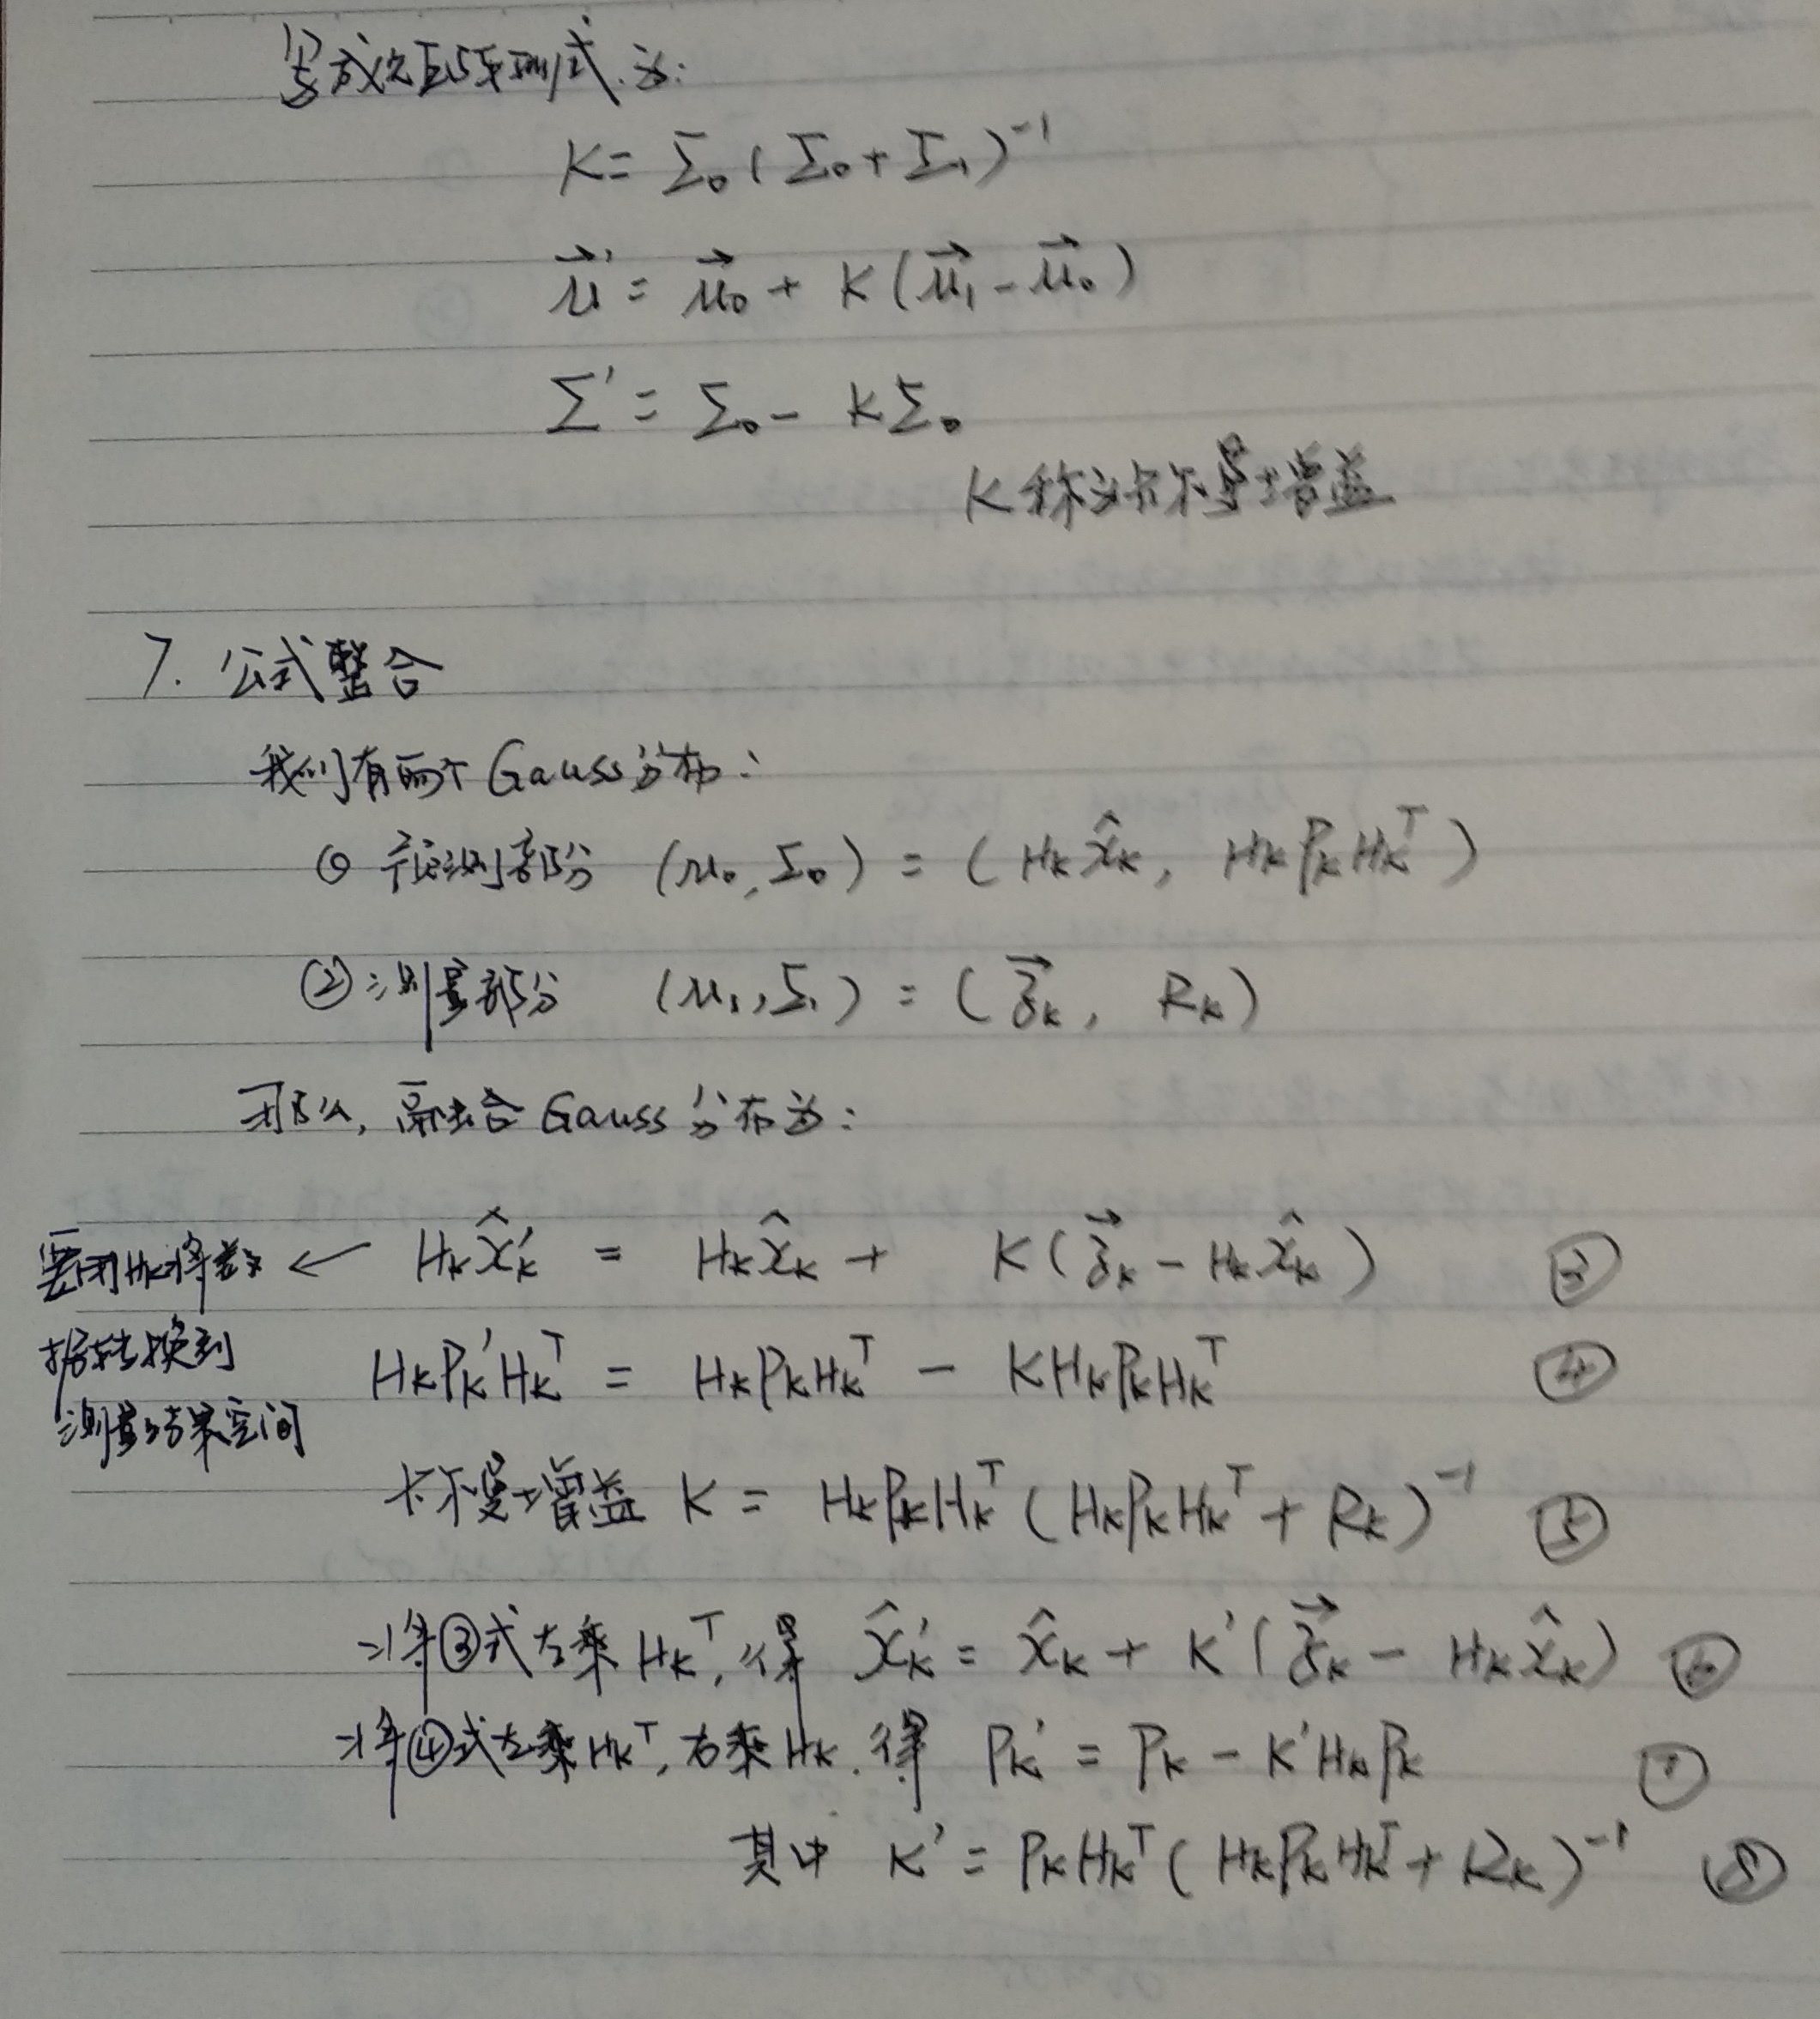 写成矩阵形式.为:
K = Σ₀ ( Σ₀ + Σ₁ )⁻¹
μ⃗' = μ⃗₀ + K ( μ⃗₁ - μ⃗₀ )
Σ' = Σ₀ - KΣ₀
K 称为卡尔曼增益
7. 公式整合
我们有两个 Gauss 分布:
① 预测部分 (μ₀, Σ₀) = ( Hₖ x̂ₖ, Hₖ Pₖ Hₖᵀ )
② 测量部分 (μ₁, Σ₁) = ( z⃗ₖ, Rₖ )
那么, 融合 Gauss 分布为:
要用Hₖ将数 ← Hₖ x̂ₖ' = Hₖ x̂ₖ + K ( z⃗ₖ - Hₖ x̂ₖ ) ③
据转换到
Hₖ Pₖ' Hₖᵀ = Hₖ Pₖ Hₖᵀ - K Hₖ Pₖ Hₖᵀ ④
测量结果空间
卡尔曼增益 K = Hₖ Pₖ Hₖᵀ ( Hₖ Pₖ Hₖᵀ + Rₖ )⁻¹ ⑤
将③式左乘 Hₖᵀ, 得 x̂ₖ' = x̂ₖ + K' ( z⃗ₖ - Hₖ x̂ₖ ) ⑥
将④式左乘 Hₖᵀ, 右乘 Hₖ. 得 Pₖ' = Pₖ - K' Hₖ Pₖ ⑦
其中 K' = Pₖ Hₖᵀ ( Hₖ Pₖ Hₖᵀ + Rₖ )⁻¹ ⑧